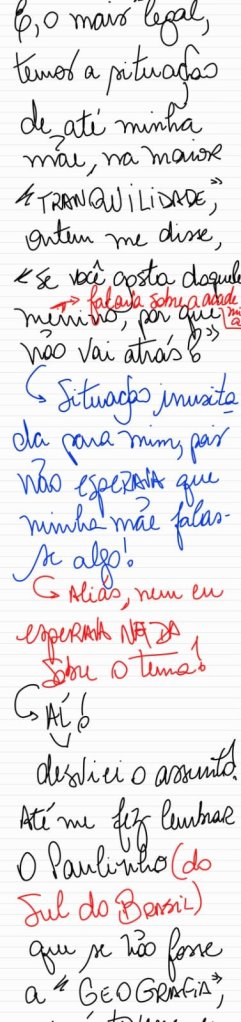 E, o mais legal,
temos a situação
de, até minha
mãe, na maior
"TRANQUILIDADE,"
ontem me disse,
"Se você gosta daquele
→ falava sobre a acade
mia
menino, por que
não vai atrás?"
↳ Situação inusita
da para mim, pois
não esperava que
minha mãe falas-
se algo!
↳ Aliás, nem eu
esperava NADA
sobre o tema!
↳ AÍ!
desviei o assunto!
Até me fez lembrar
O Paulinho (do
Sul do Brasil)
que se não fosse
a "GEOGRAFIA",